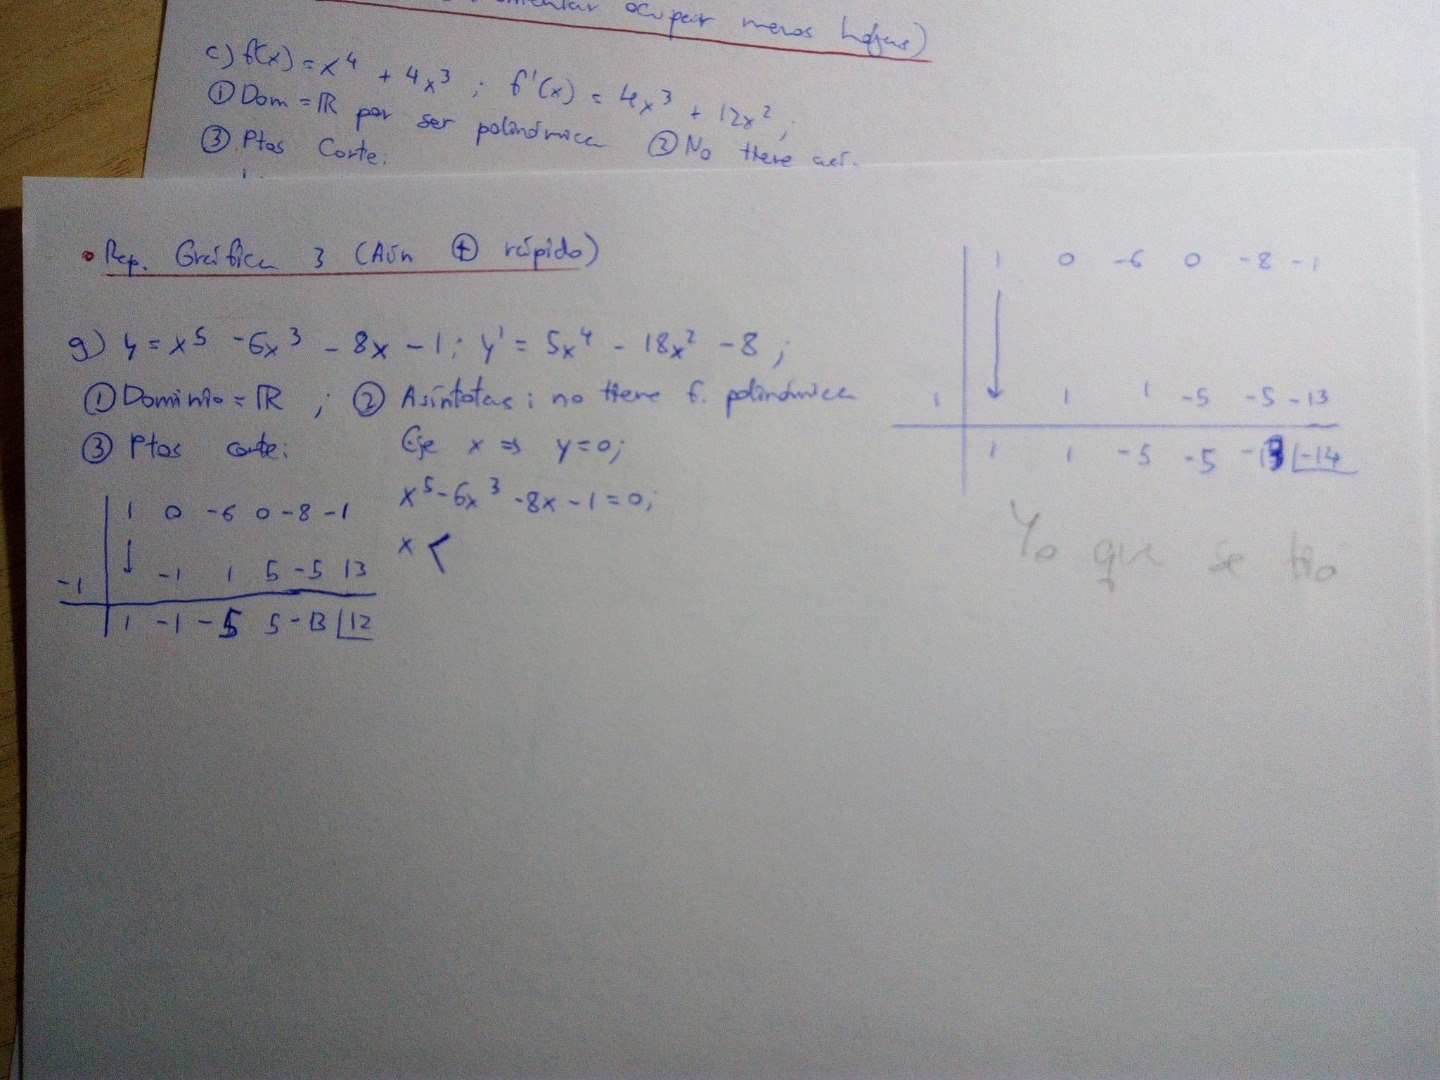 ocupar menos hojas)
c) f(x) = x⁴ + 4x³ ; f'(x) = 4x³ + 12x² ;
① Dom = ℝ por ser polinómica ② No tiene así.
③ Ptos Corte:
• Rep. Gráfica 3 (Aún ⊕ rápido)
g) y = x⁵ - 6x³ - 8x - 1 ; y' = 5x⁴ - 18x² - 8 ;
① Dominio = ℝ ; ② Asíntotas : no tiene f. polinómica
③ Ptos corte: Eje x ⇒ y = 0;
x⁵ - 6x³ - 8x - 1 = 0;
x <
1 0 -6 0 -8 -1
-1 -1 1 5 -5 13
1 -1 -5 5 -13 12
1 0 -6 0 -8 -1
1 1 1 -5 -5 -13
1 1 -5 -5 -13 -14
Yo que se tio